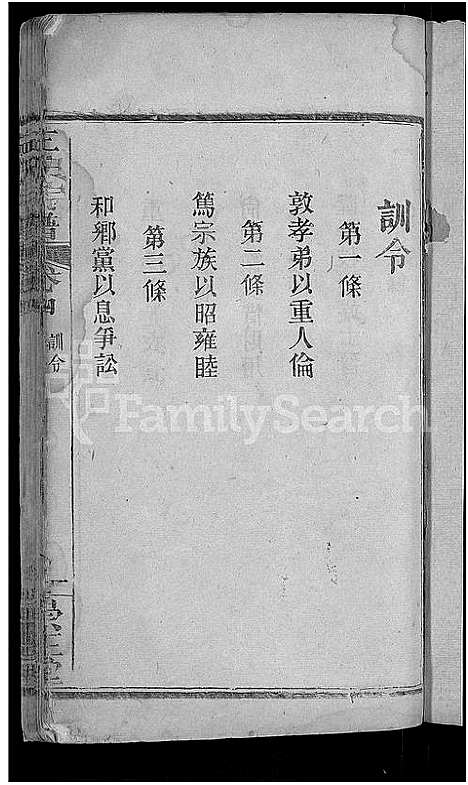 訓令
第一條
敦孝弟以重人倫
第二條
篤宗族以昭雍睦
第三條
和鄉黨以息爭訟
訓令
FamilySearch